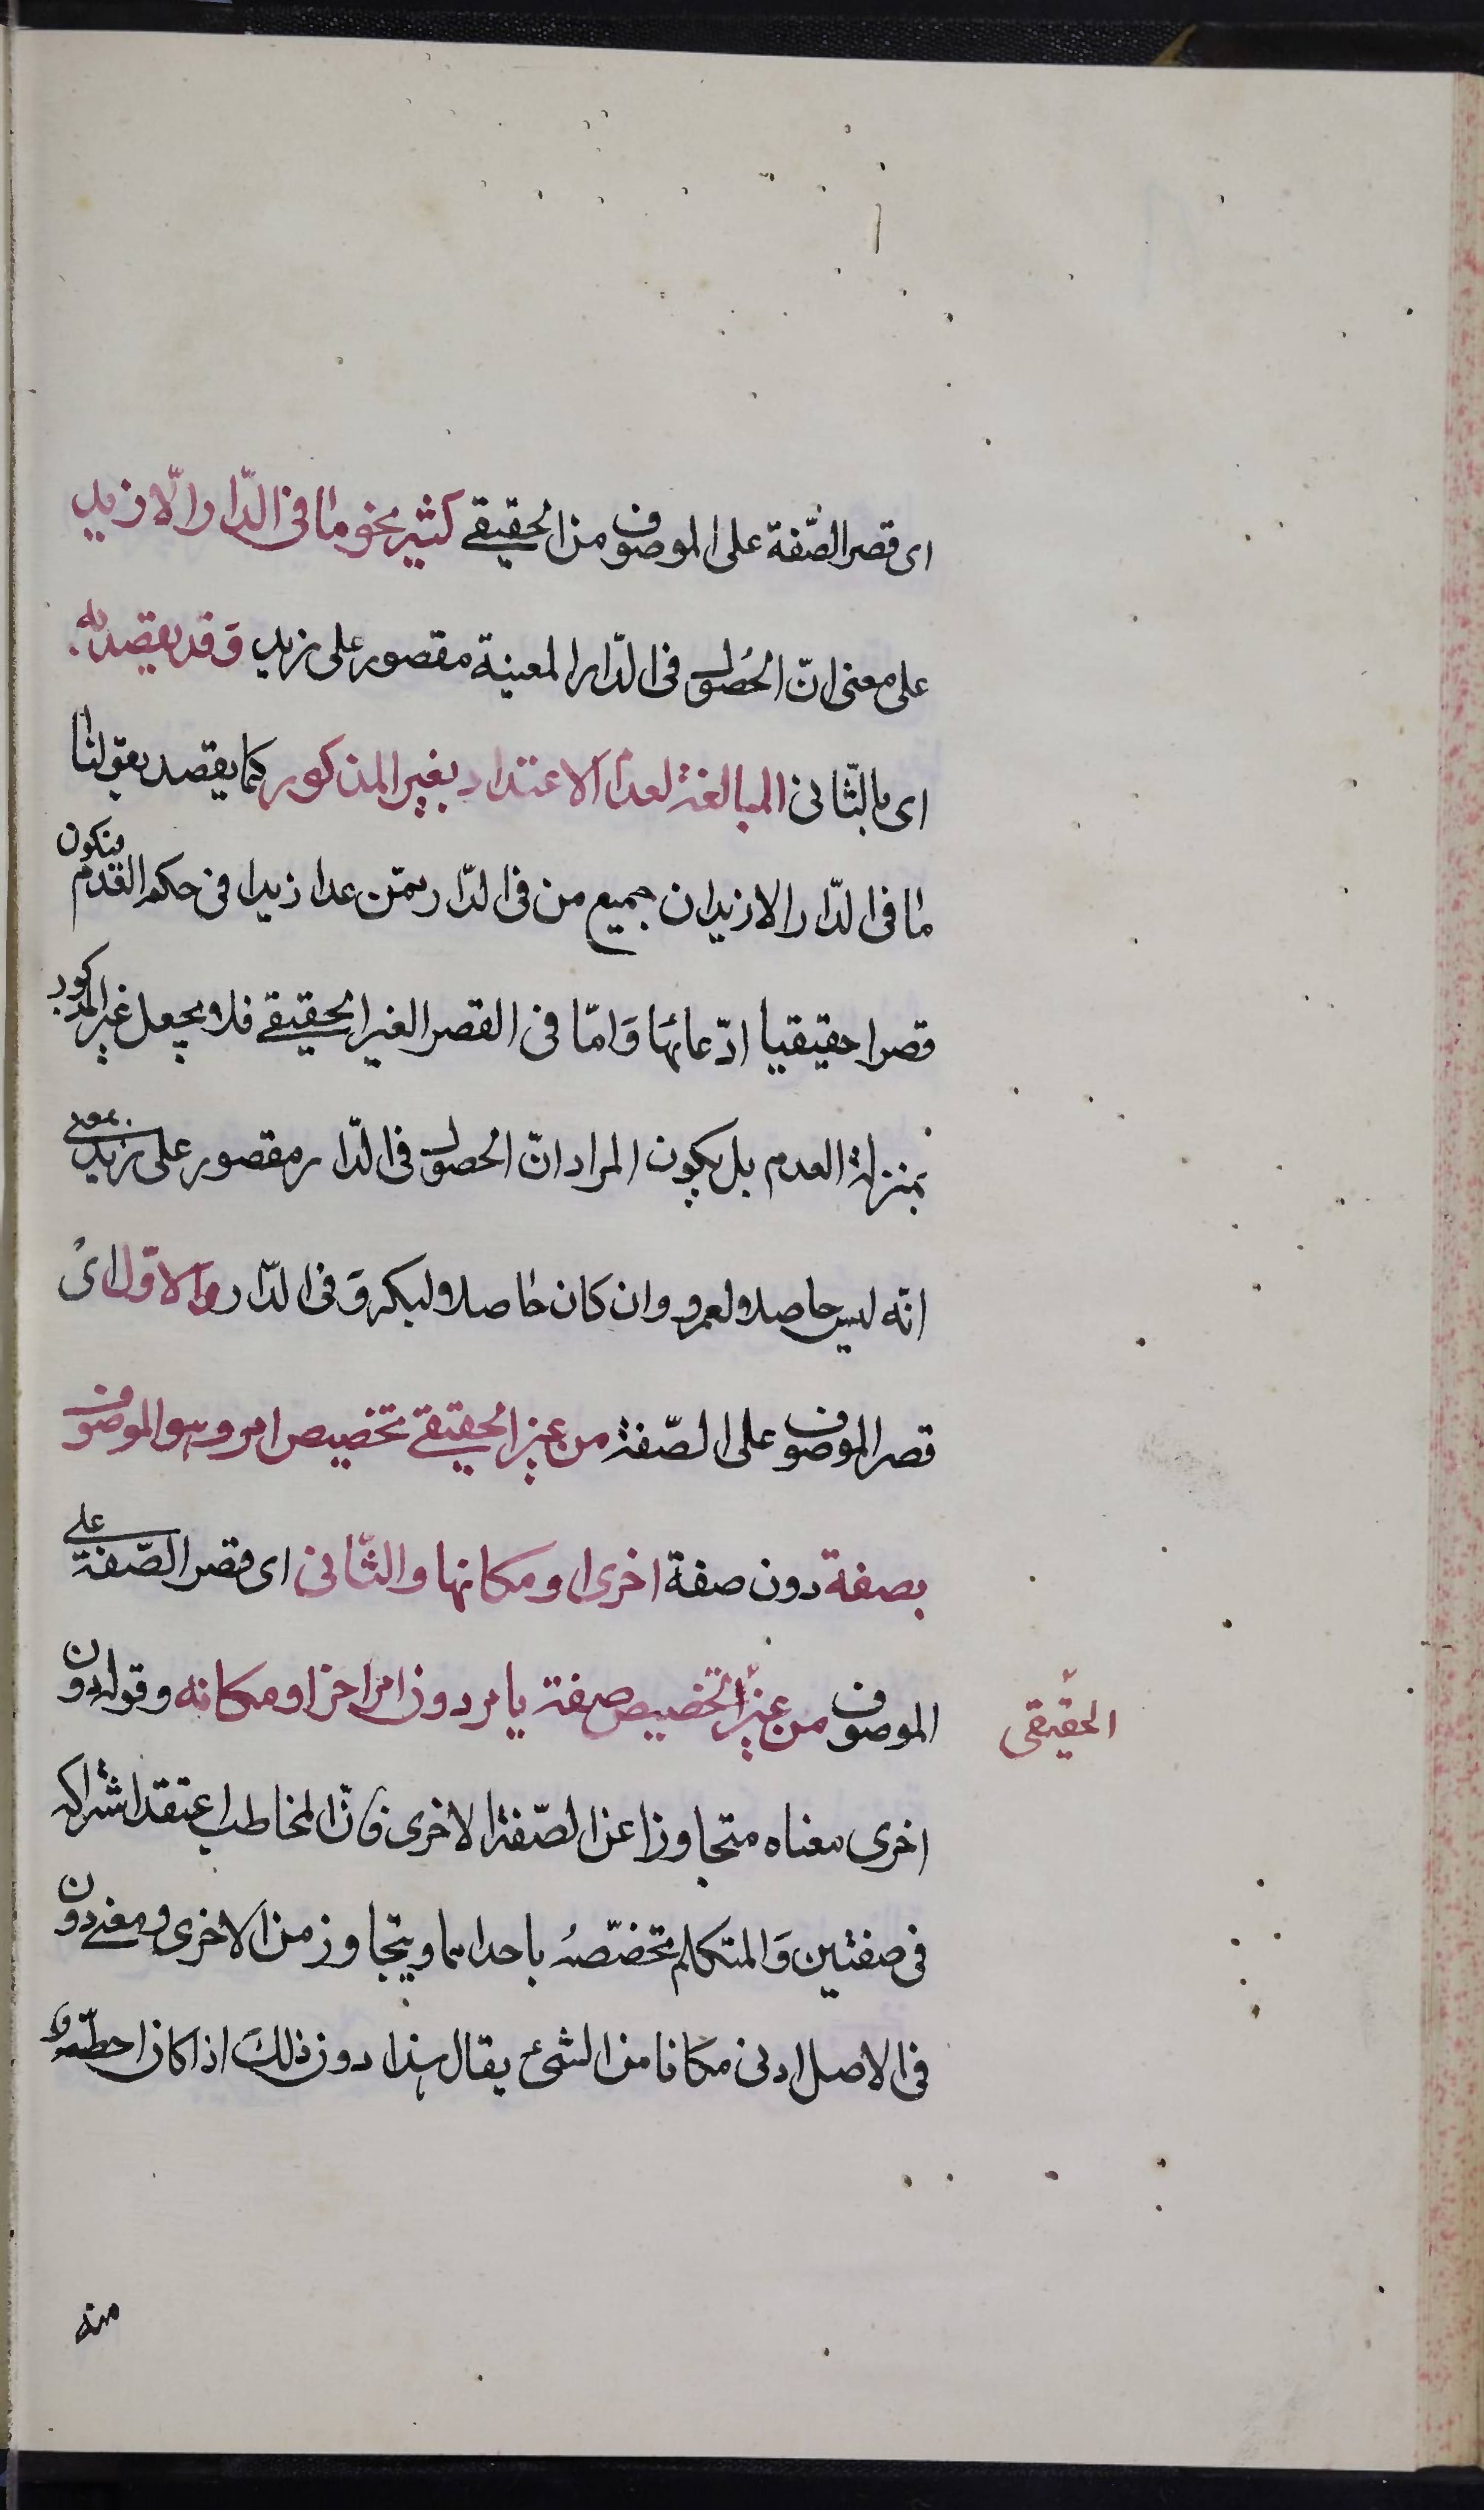 اى قصر الصّفة على الموصوف من الحقيقى كثير نحو ما فى الدّار الّا زيد
على معنى انّ الحُصول فى الدّار المعينة مقصور على زيد وَقد يقصد به
اى بالثّانى المبالغة لعدم الاعتداد بغير المذكور كما يقصد بقولنا
ما فى الدّار الا زيد ان جميع من فى الدّار ممّن عدا زيدا فى حكم العدم فيكون
قصرا حقيقيا ادّعائيا وَامّا فى القصر الغير الحقيقى فلا يجعل غير المذكور
بمنزلة العدم بل يكون المراد انّ الحصول فى الدّار مقصور على زيد بمعنى
انّه ليس حاصلا لعمرو وان كان حاصلا لبكر وَ فى الدّار والاوّل اىْ
قصر الموصوف على الصّفة من غير الحقيقى تخصيص امر وهو الموصوف
بصفة دون صفة اخرى او مكانها والثّانى اى قصر الصّفة على
الموصوف من غير تخصيص صفة بامر دون امر اخر او مكانه وقوله دون
الحقيقى
اخرى معناه متجاوزا عن الصّفة الاخرى فانّ المخاطب اعتقد اشتراكه
فى صفتين وَالمتكلم يخصّصهُ باحداهما ويتجاوز من الاخرى ومعنى دون
فى الاصل ادنى مكانا من الشئ يقال هذا دون ذلكَ اذا كان احطّ
منه